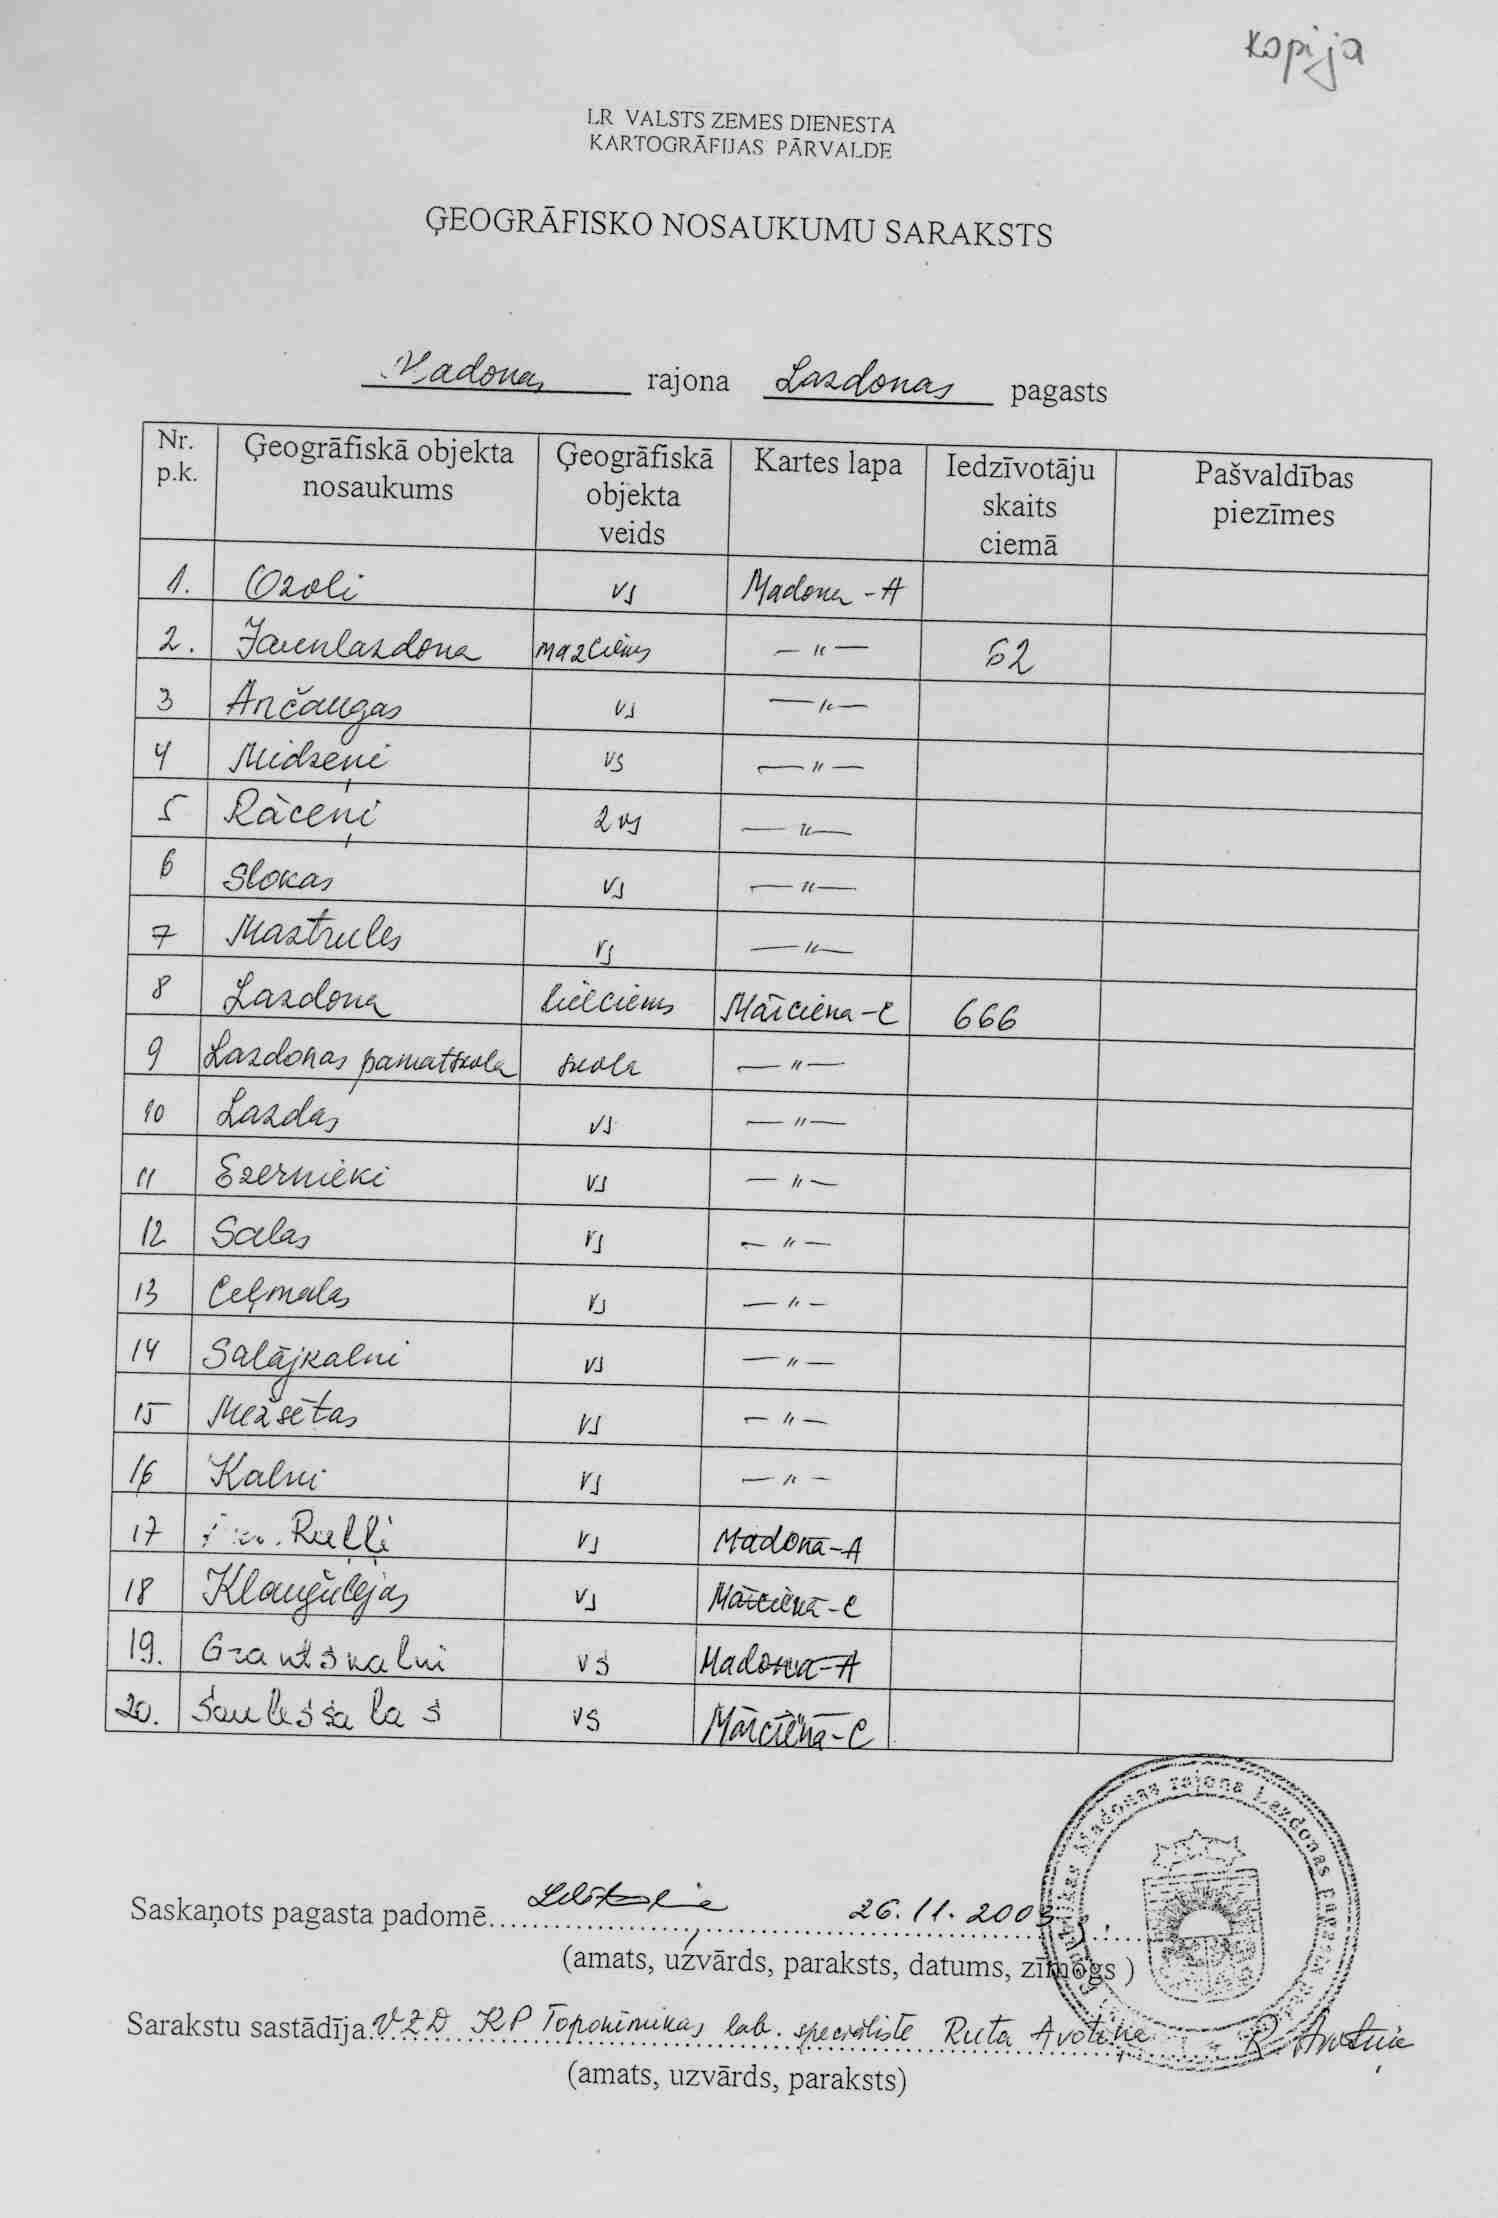 kopija
LR VALSTS ZEMES DIENESTA
KARTOGRĀFIJAS PĀRVALDE
ĢEOGRĀFISKO NOSAUKUMU SARAKSTS
Madonas rajona Lazdonas pagasts
Nr. p.k. Ģeogrāfiskā objekta nosaukums Ģeogrāfiskā objekta veids Kartes lapa Iedzīvotāju skaits ciemā Pašvaldības piezīmes
1. Ozoli vs Madona-A
2. Jaunlazdona mazciems —"— 52
3 Ančaugas vs —"—
4 Midzeņi vs —"—
5 Rāceņi 2 vs —"—
6 Slokas vs —"—
7 Maztrules vs —"—
8 Lazdona lielciems Mārciena-C 666
9 Lazdonas pamatskola skola —"—
10 Lazdas vs —"—
11 Ezernieki vs —"—
12 Salas vs —"—
13 Ceļmalas vs —"—
14 Salājkalni vs —"—
15 Mežsētas vs —"—
16 Kalni vs —"—
17 Ruļļi vs Madona-A
18 Klaugulejas vs Mārciena-C
19. Grantskalni vs Madona-A
20. Saulessalas vs Mārciena-C
Saskaņots pagasta padomē 26.11.2003.
(amats, uzvārds, paraksts, datums, zīmogs )
Sarakstu sastādīja VZD KP Toponīmikas lab. speciāliste Ruta Avotiņa R. Avotiņa
(amats, uzvārds, paraksts)
Madonas rajona Lazdonas pagasta